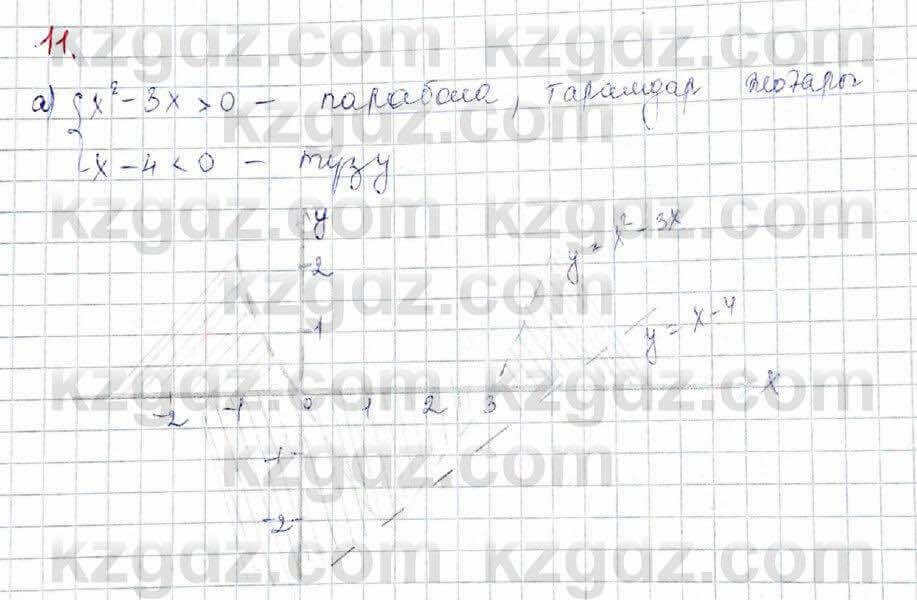 11.
а) { x² - 3x > 0 - парабола, тарамдар жоғары
x - 4 < 0 - түзу
y
2
y = x² - 3x
1
y = x - 4
-2 -1 0 1 2 3 x
-1
-2
kzgdz.com kzgdz.com
kzgdz.com
kzgdz.com kzgdz.com
kzgdz.com
kzgdz.com kzgdz.com
kzgdz.com
kzgdz.com kzgdz.com